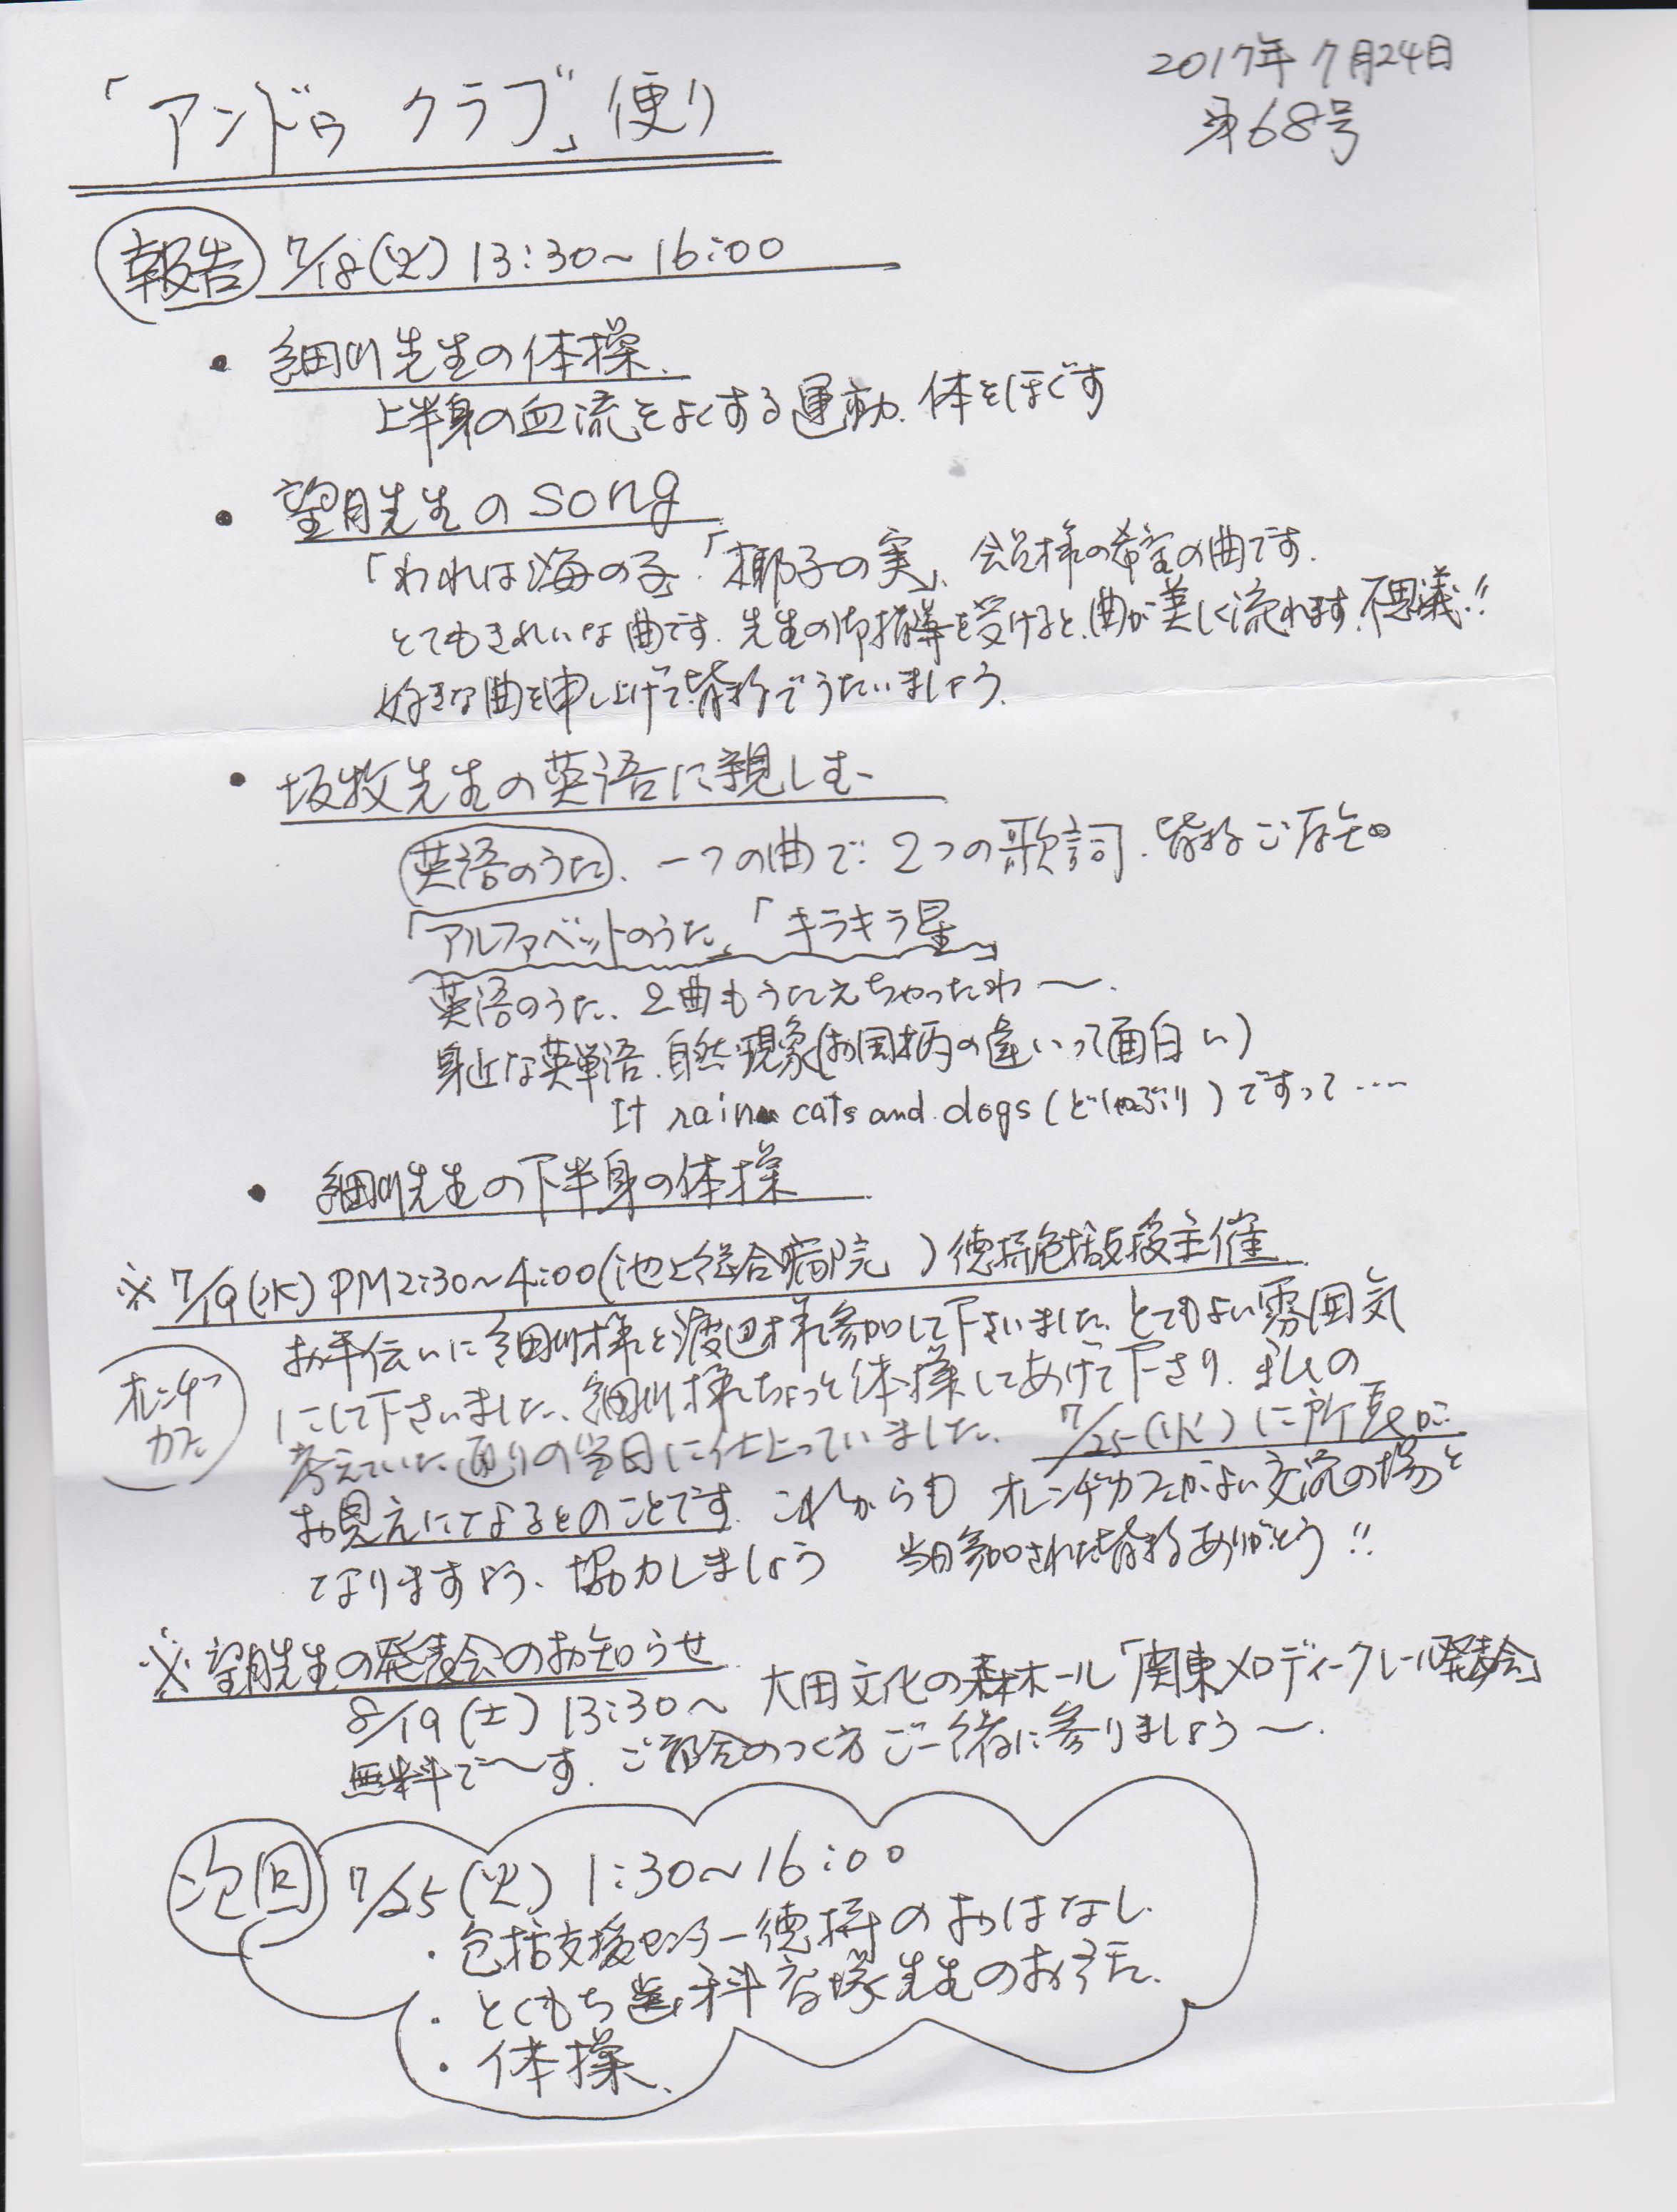 2017年7月24日
「アンドゥ クラブ」便り
第68号
報告 7/18(火) 13:30～16:00
・細川先生の体操、
上半身の血流をよくする運動、体をほぐす
・望月先生のsong
「われは海の子」「椰子の実」、会員様の希望の曲です。
とてもきれいな曲です。先生の御指導を受けると、曲が美しく流れます、不思議!!
好きな曲を申し上げて皆様でうたいましょう。
・坂牧先生の英語に親しむ
英語のうた、一つの曲で2つの歌詞、皆様ご存知の
「アルファベットのうた」「キラキラ星」
英語のうた、2曲もうたえちゃったわ～。
身近な英単語、自然現象(お国柄の違いって面白い)
It rain cats and dogs (どしゃぶり)ですって‥‥
・細川先生の下半身の体操
※7/19(水) PM2:30～4:00(池上総合病院 )徳持包括支援主催
お手伝いに細川様と渡辺様参加して下さいました、とてもよい雰囲気
オレンヂカフェ
にして下さいました、細川様ちょっと体操してあげて下さり、私の
考えていた通りの当日に仕上っていました、7/25(火)に所長が
お見えになるとのことです。これからも オレンヂカフェがよい交流の場と
なりますよう、協力しましょう 当日参加された皆様ありがとう!!
※望月先生の発表会のお知らせ
8/19(土) 13:30～ 大田文化の森ホール「関東メロディークレール発表会」
無料で～す。ご都合のつく方ご一緒に参りましょう～。
次回 7/25(火) 1:30～16:00
・包括支援センター徳持のおはなし
・とくもち歯科 先生のお話、
・体操、